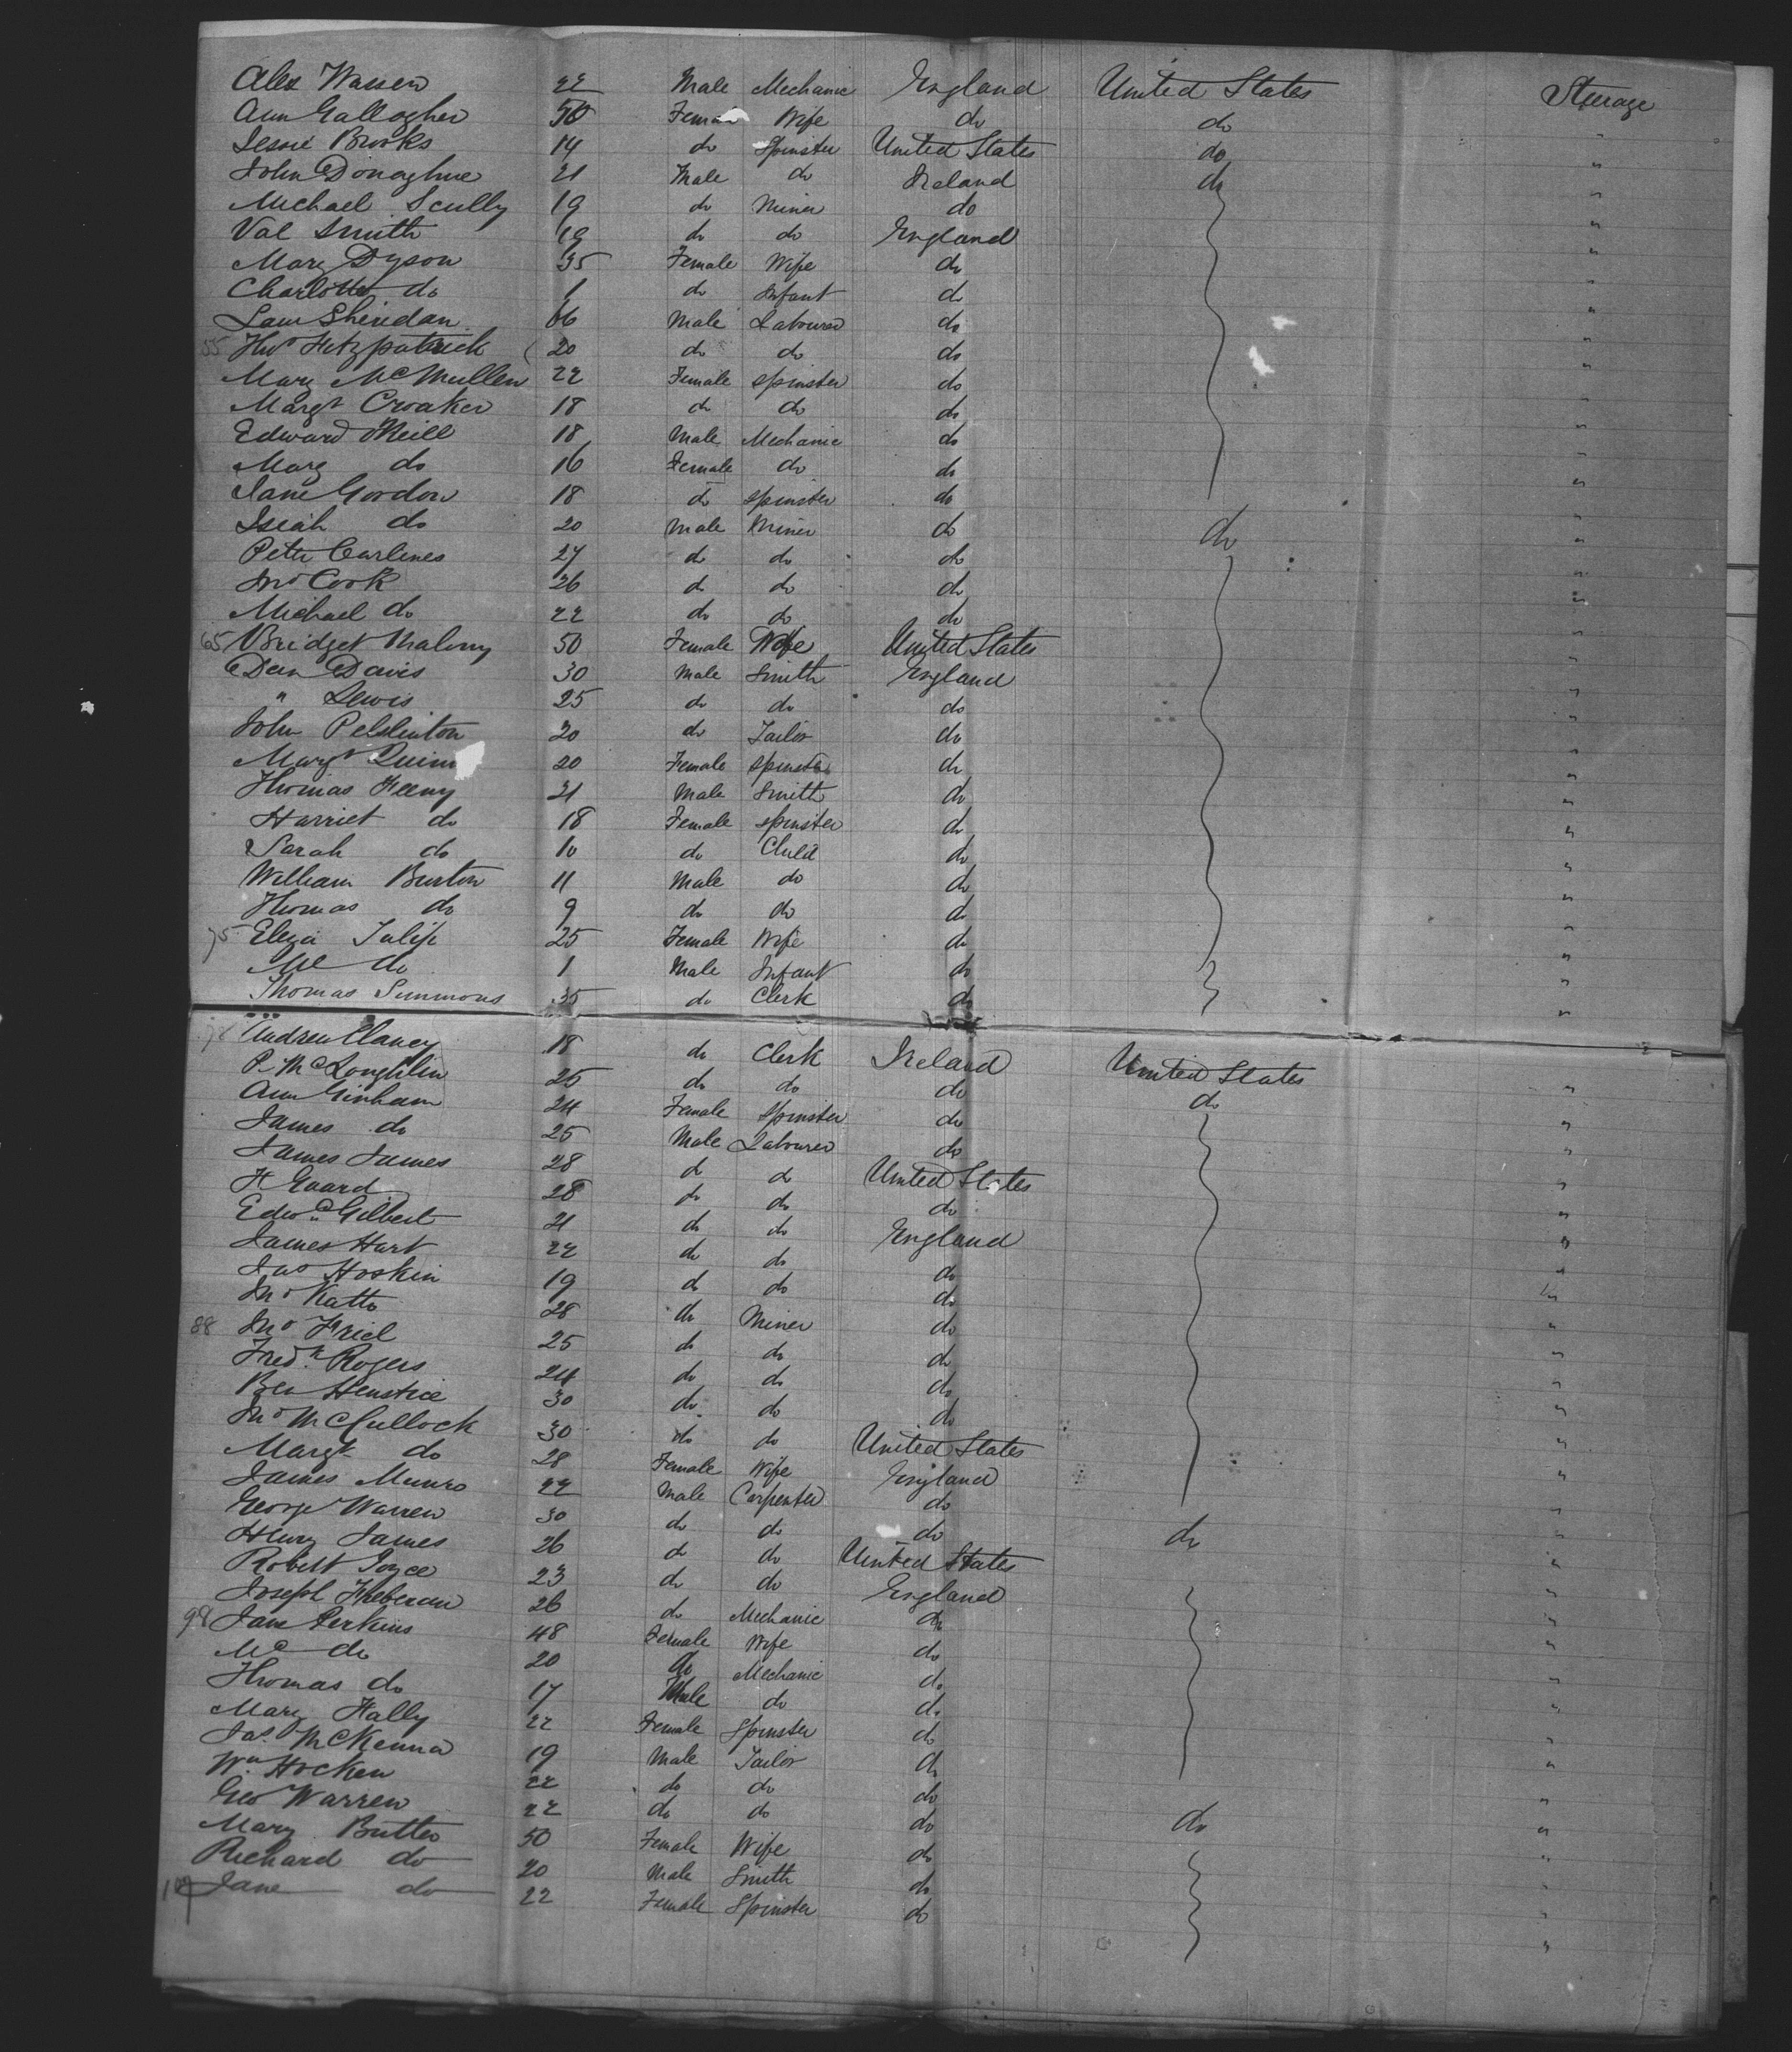 Alex Warren 22 Male Mechanic England United States Steerage
Ann Gallogher 50 Female Wife do do "
Jessie Brooks 14 do Spinster United States do "
John Donaghue 21 Male do Ireland do "
Michael Scully 19 do Miner do "
Val Smith 19 do do England "
Mary Dyson 35 Female Wife do "
Charlotte do 1 do Infant do "
Sam Sheridan 66 Male Labourer do "
55 Thos Fitzpatrick 20 do do do "
Mary McMullen 22 Female Spinster do "
Margt Croaker 18 do do do "
Edward ONeill 18 Male Mechanic do "
Mary do 16 Female do do "
Jane Gordon 18 do Spinster do "
Isiah do 20 Male Miner do do "
Peter Carlenes 27 do do do "
Jno Cook 26 do do do "
Michael do 22 do do do "
65 Bridget Malony 50 Female Wife United States "
Dan Davis 30 Male Smith England "
" Lewis 25 do do do "
John 20 do Tailor do "
Margt Quinn 20 Female Spinster do "
Thomas Feeny 21 Male Smith do "
Harriet do 18 Female Spinster do "
Sarah do 10 do Child do "
William Burton 11 Male do do "
Thomas do 9 do do do "
75 Eliza Julip 25 Female Wife do "
do 1 Male Infant do "
Thomas Simmons 35 do Clerk do "
78 Andrew Clancy 18 do Clerk Ireland United States "
P McLoughlin 25 do do do do "
Ann Ginham 24 Female Spinster do "
James do 25 Male Labourer do "
James James 28 do do United States "
H Goard 28 do do do "
Edwd Gilbert 21 do do England "
James Hart 22 do do do "
Jas Hoskin 19 do do do "
Jno Katto 28 do Miner do "
88 Jno Friel 25 do do do "
Fredk Rogers 24 do do do "
Ben Henstrie 30 do do do "
Jno McCullock 30 do do United States "
Margt do 28 Female Wife England "
James Munro 22 Male Carpenter do "
George Warren 30 do do do do "
Henry James 26 do do United States "
Robert Joyce 23 do do England "
Joseph 26 do Mechanic do "
98 Jane Perkins 48 Female Wife do "
do 20 do Mechanic do "
Thomas do 17 Male do do "
Mary Hally 22 Female Spinster do "
Jas. McKenna 19 Male Tailor do "
Wm Hocken 22 do do do "
Geo Warren 22 do do do do "
Mary Butler 50 Female Wife do "
Richard do 20 Male Smith do "
Jane do 22 Female Spinster do "